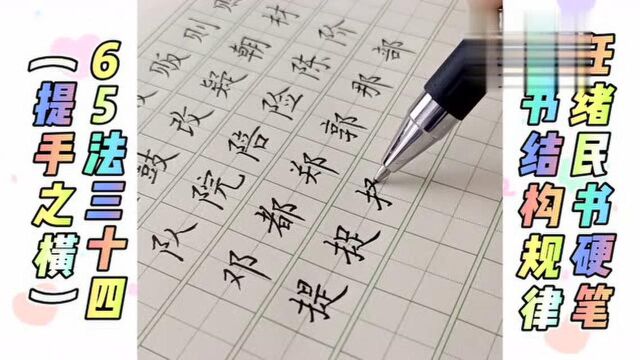 绪民书硬笔
书结构规律
65法三十四
（提手之横）
贩则
鼓改疑朝材
队院陪险陈阶
邓都郑郭那部
提捉